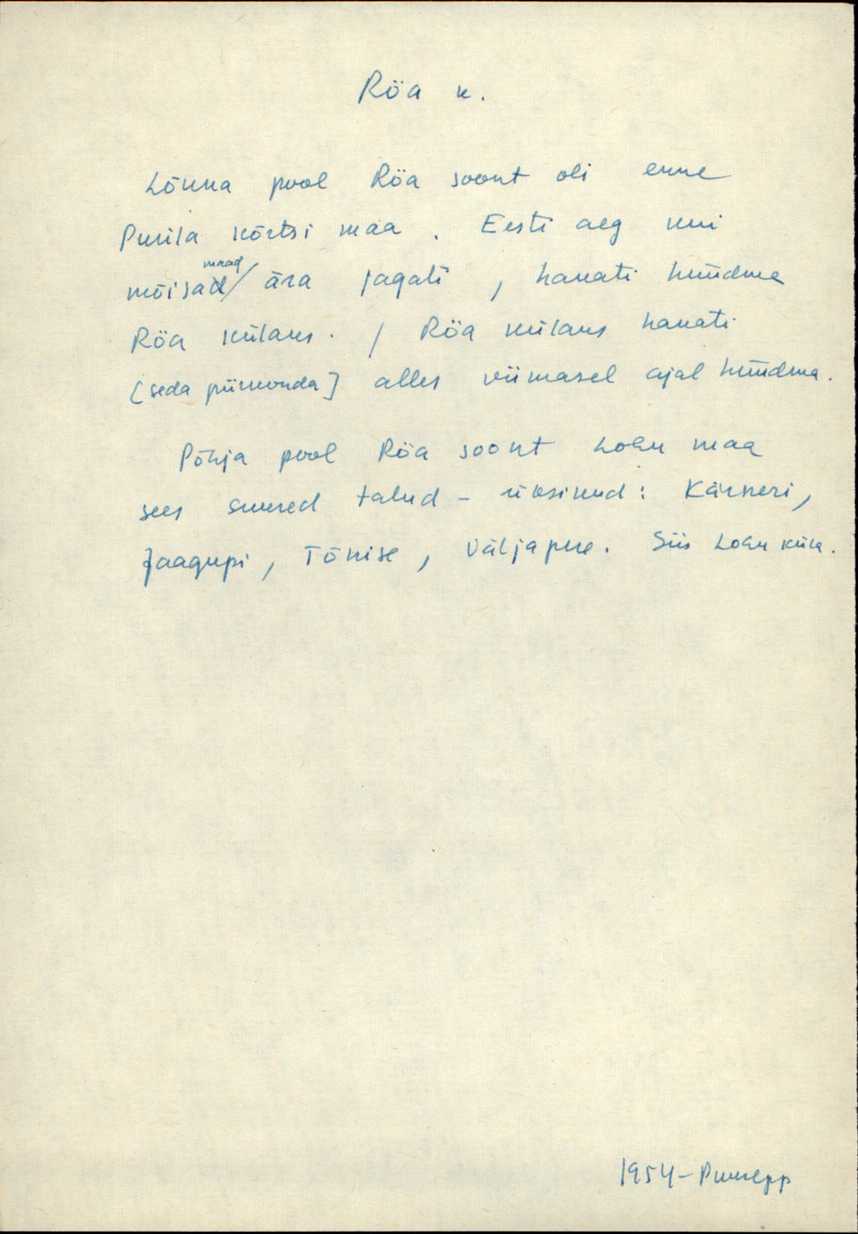 Röa k.
Lõuna pool Röa soont oli enne
Purila kõrtsi maa. Eesti aeg kui
mõisad maad ära jagati, hakati hüüdma
Röa külaks. / Röa külaks hakati
[seda piirkonda] alles viimasel ajal hüüdma.
Põhja pool Röa soont Lohu maa
sees suured talud - üksikud: Kärneri,
Jaagupi, Tõnise, Väljapere. Siis Lohu küla.
1954 - Puusepp